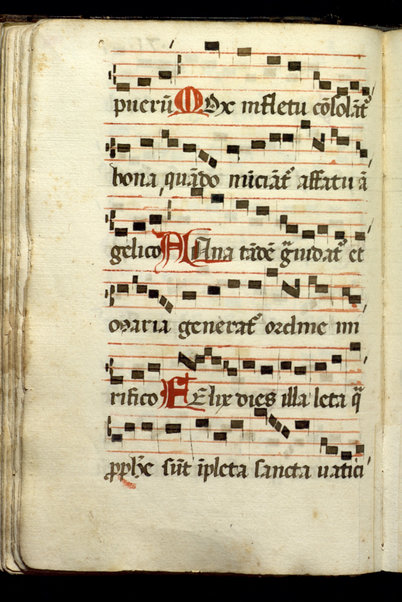 puerũ Mox in fletu cõsolat᷑
bona quãdo nũciat᷑ affatu ã
gelico Anna tãdẽ g̃uidat᷑ et
maria generat᷑ ordine mi
rifico Felix dies illa leta q̃
ꝓphẽ sũt ĩpleta sancta uatici